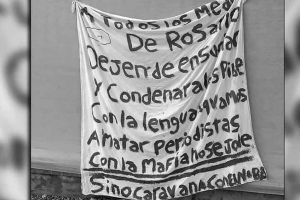 A todos los Med
De Rosario
Dejen de ensuciar
Y Condenar a Ls Pibe
Con la lengua vamos
A matar periodistas
Con la Mafia no se Jode
Sino Caravana